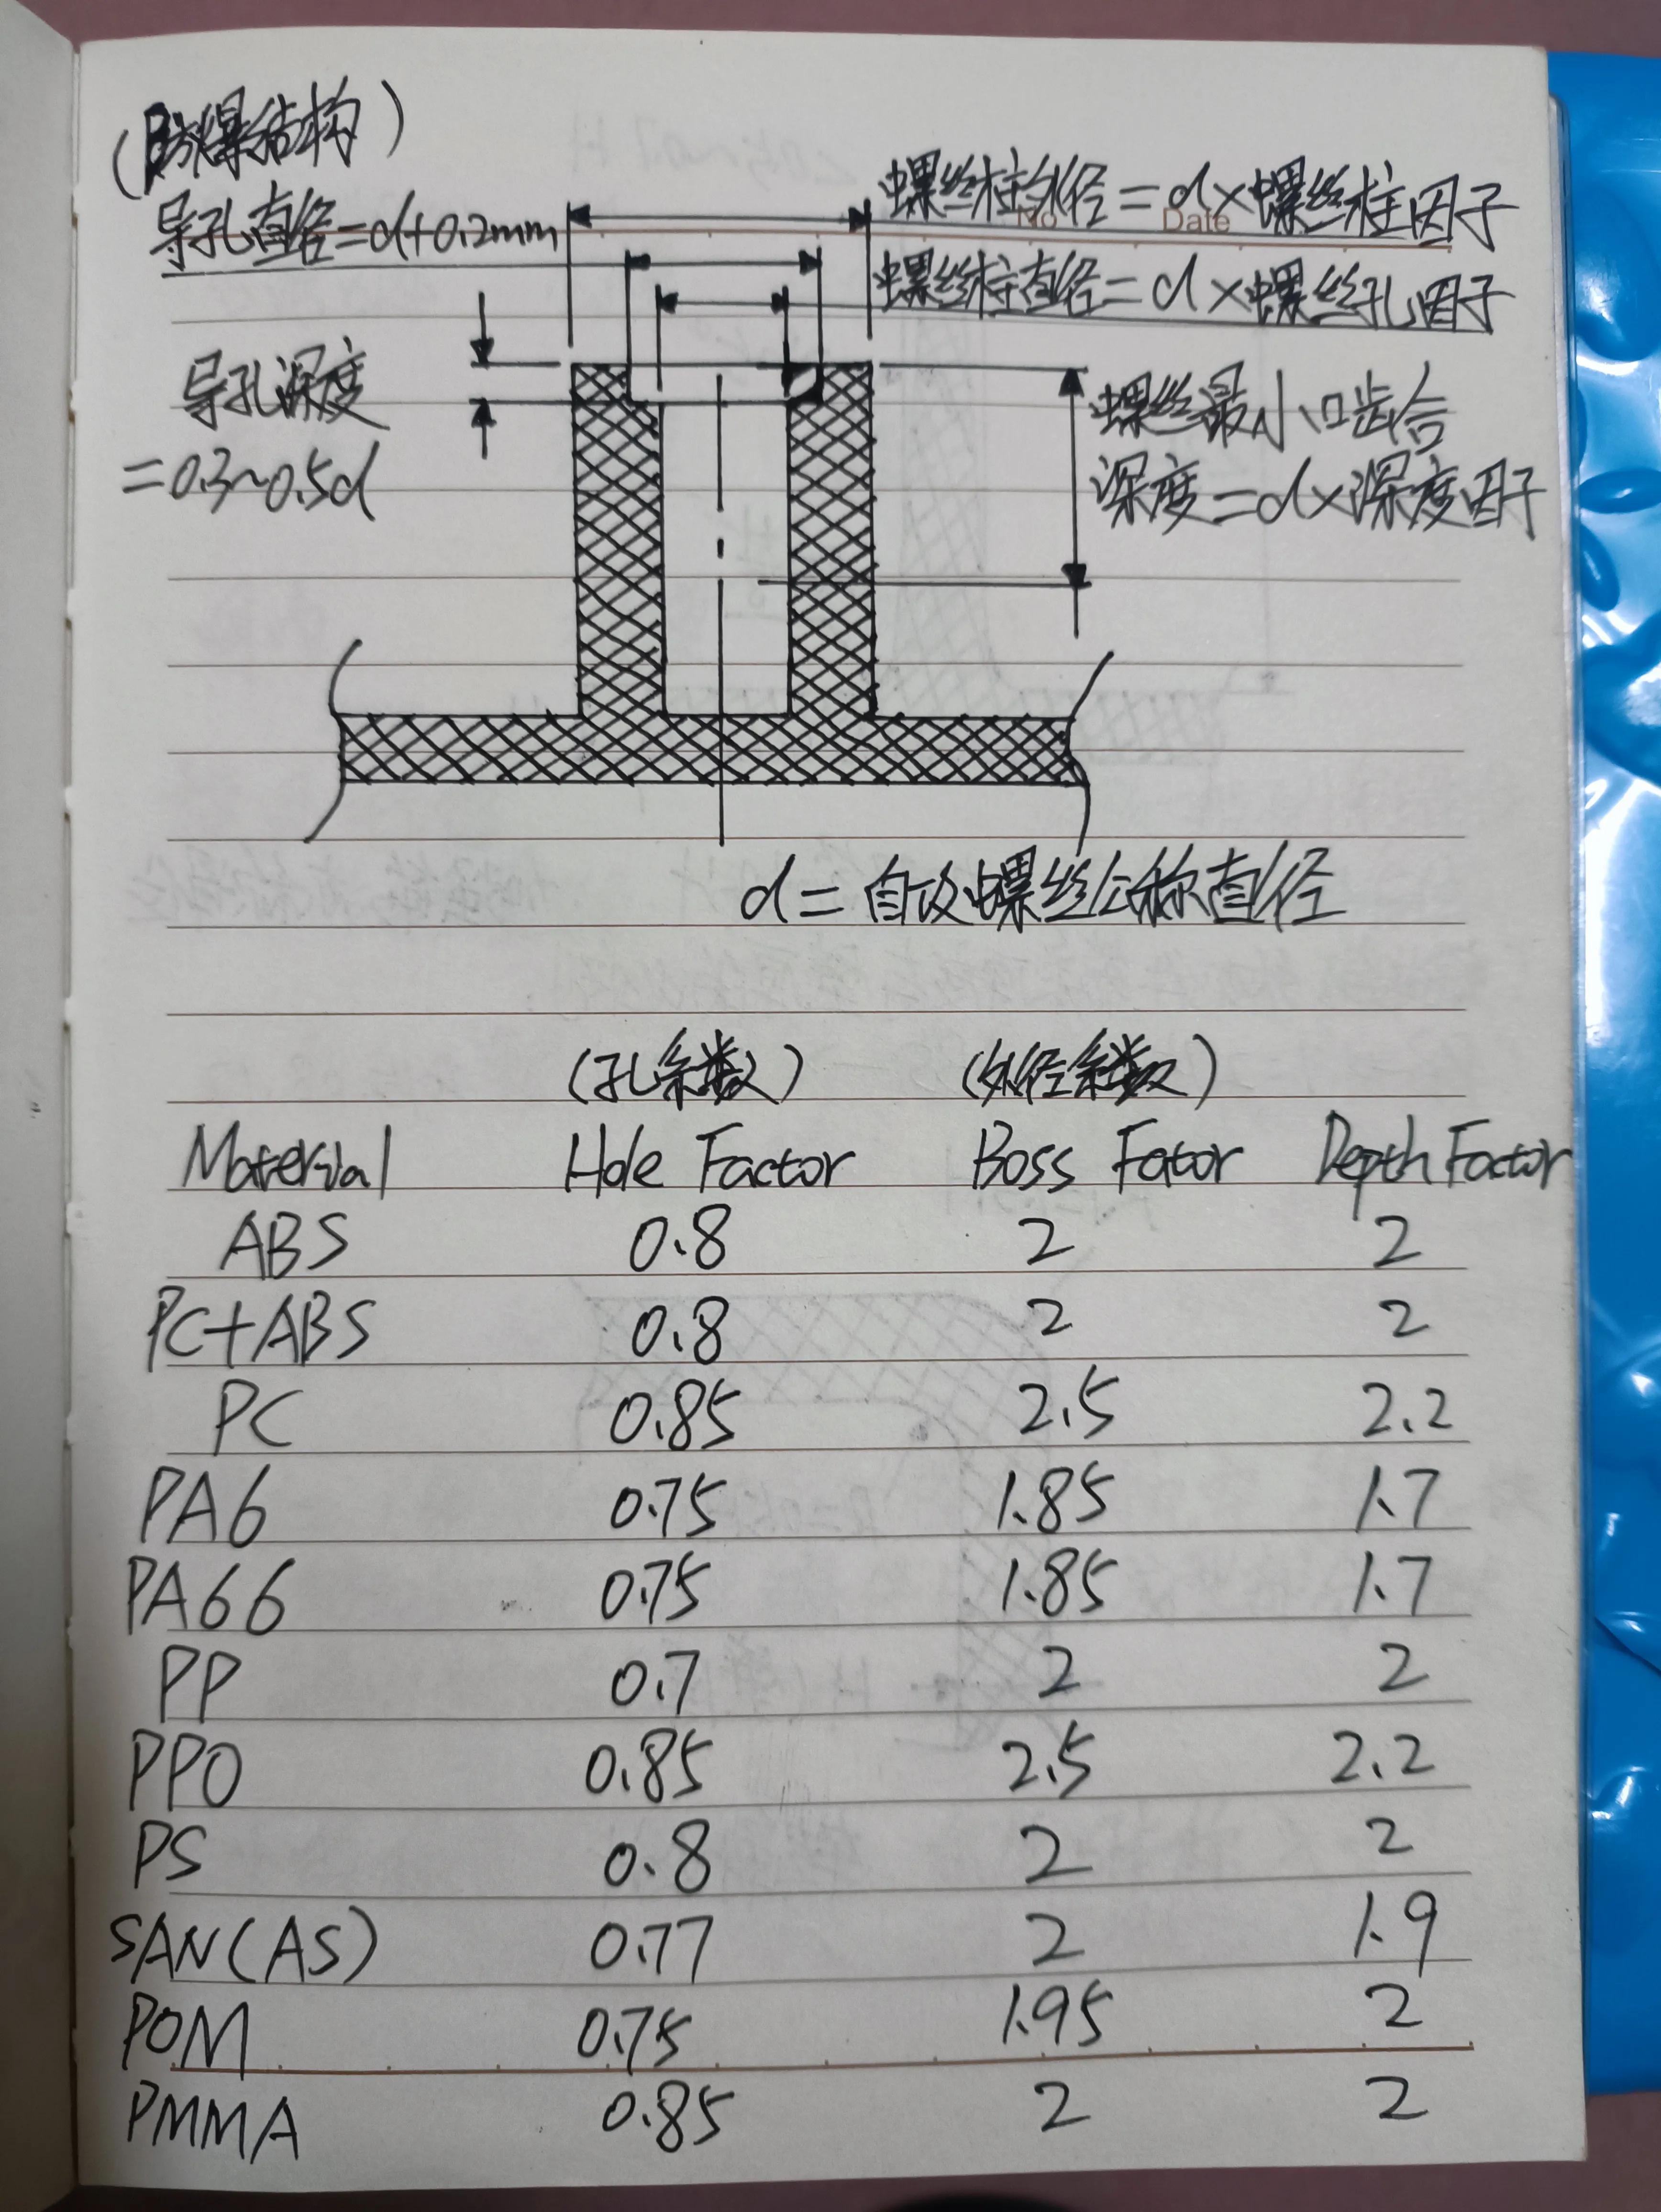 (防爆结构)
导孔直径=d+0.2mm
螺丝柱外径=d×螺丝柱因子
No
Date
螺丝柱直径=d×螺丝孔因子
导孔深度
=0.3~0.5d
螺丝最小口齿合
深度=d×深度因子
d=自攻螺丝公称直径
(孔系数) (外径系数)
Material Hole Factor Boss Fator Depth Factor
ABS 0.8 2 2
PC+ABS 0.8 2 2
PC 0.85 2.5 2.2
PA6 0.75 1.85 1.7
PA66 0.75 1.85 1.7
PP 0.7 2 2
PPO 0.85 2.5 2.2
PS 0.8 2 2
SAN(AS) 0.77 2 1.9
POM 0.75 1.95 2
PMMA 0.85 2 2